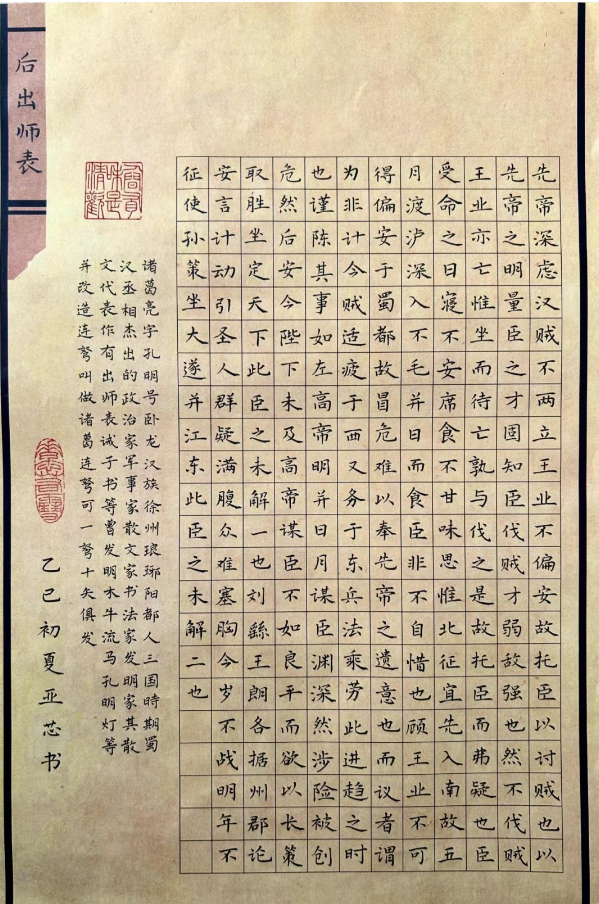 后出师表
先帝深虑汉贼不两立王业不偏安故托臣以讨贼也以
先帝之明量臣之才固知臣伐贼才弱敌强也然不伐贼
王业亦亡惟坐而待亡孰与伐之是故托臣而弗疑也臣
受命之日寝不安席食不甘味思惟北征宜先入南故五
月渡泸深入不毛并日而食臣非不自惜也顾王业不可
得偏安于蜀都故冒危难以奉先帝之遗意也而议者谓
为非计今贼适疲于西又务于东兵法乘劳此进趋之时
也谨陈其事如左高帝明并日月谋臣渊深然涉险被创
危然后安今陛下未及高帝谋臣不如良平而欲以长策
取胜坐定天下此臣之未解一也刘繇王朗各据州郡论
安言计动引圣人群疑满腹众难塞胸今岁不战明年不
征使孙策坐大遂并江东此臣之未解二也
诸葛亮字孔明号卧龙汉族徐州琅琊阳都人三国時期蜀
汉丞相杰出的政治家军事家散文家书法家发明家其散
文代表作有出师表诫子书等曾发明木牛流马孔明灯等
并改造连弩叫做诸葛连弩可一弩十矢俱发
乙巳初夏亚芯书